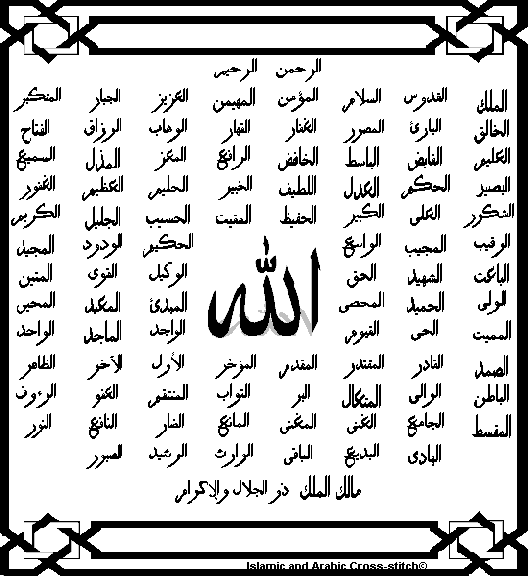 الرحمن الرحيم
الملك القدوس السلام المؤمن المهيمن العزيز الجبار المتكبر
الخالق البارئ المصور الغفار القهار الوهاب الرزاق الفتاح
العليم القابض الباسط الخافض الرافع المعز المذل السميع
البصير الحكم العدل اللطيف الخبير الحليم العظيم الغفور
الشكور العلى الكبير الحفيظ المقيت الحسيب الجليل الكريم
الرقيب المجيب الواسع الحكيم الودود المجيد
الباعث الشهيد الحق الوكيل القوى المتين
الله
الولى الحميد المحصى المبدئ المعيد المحيى
المميت الحى القيوم الواجد الماجد الواحد
الصمد القادر المقتدر المقدم المؤخر الأول الآخر الظاهر
الباطن الوالى المتعال البر التواب المنتقم العفو الرءوف
المقسط الجامع الغنى المغنى المانع الضار النافع النور
الهادى البديع الباقى الوارث الرشيد الصبور
مالك الملك ذو الجلال والإكرام
Islamic and Arabic Cross-stitch©